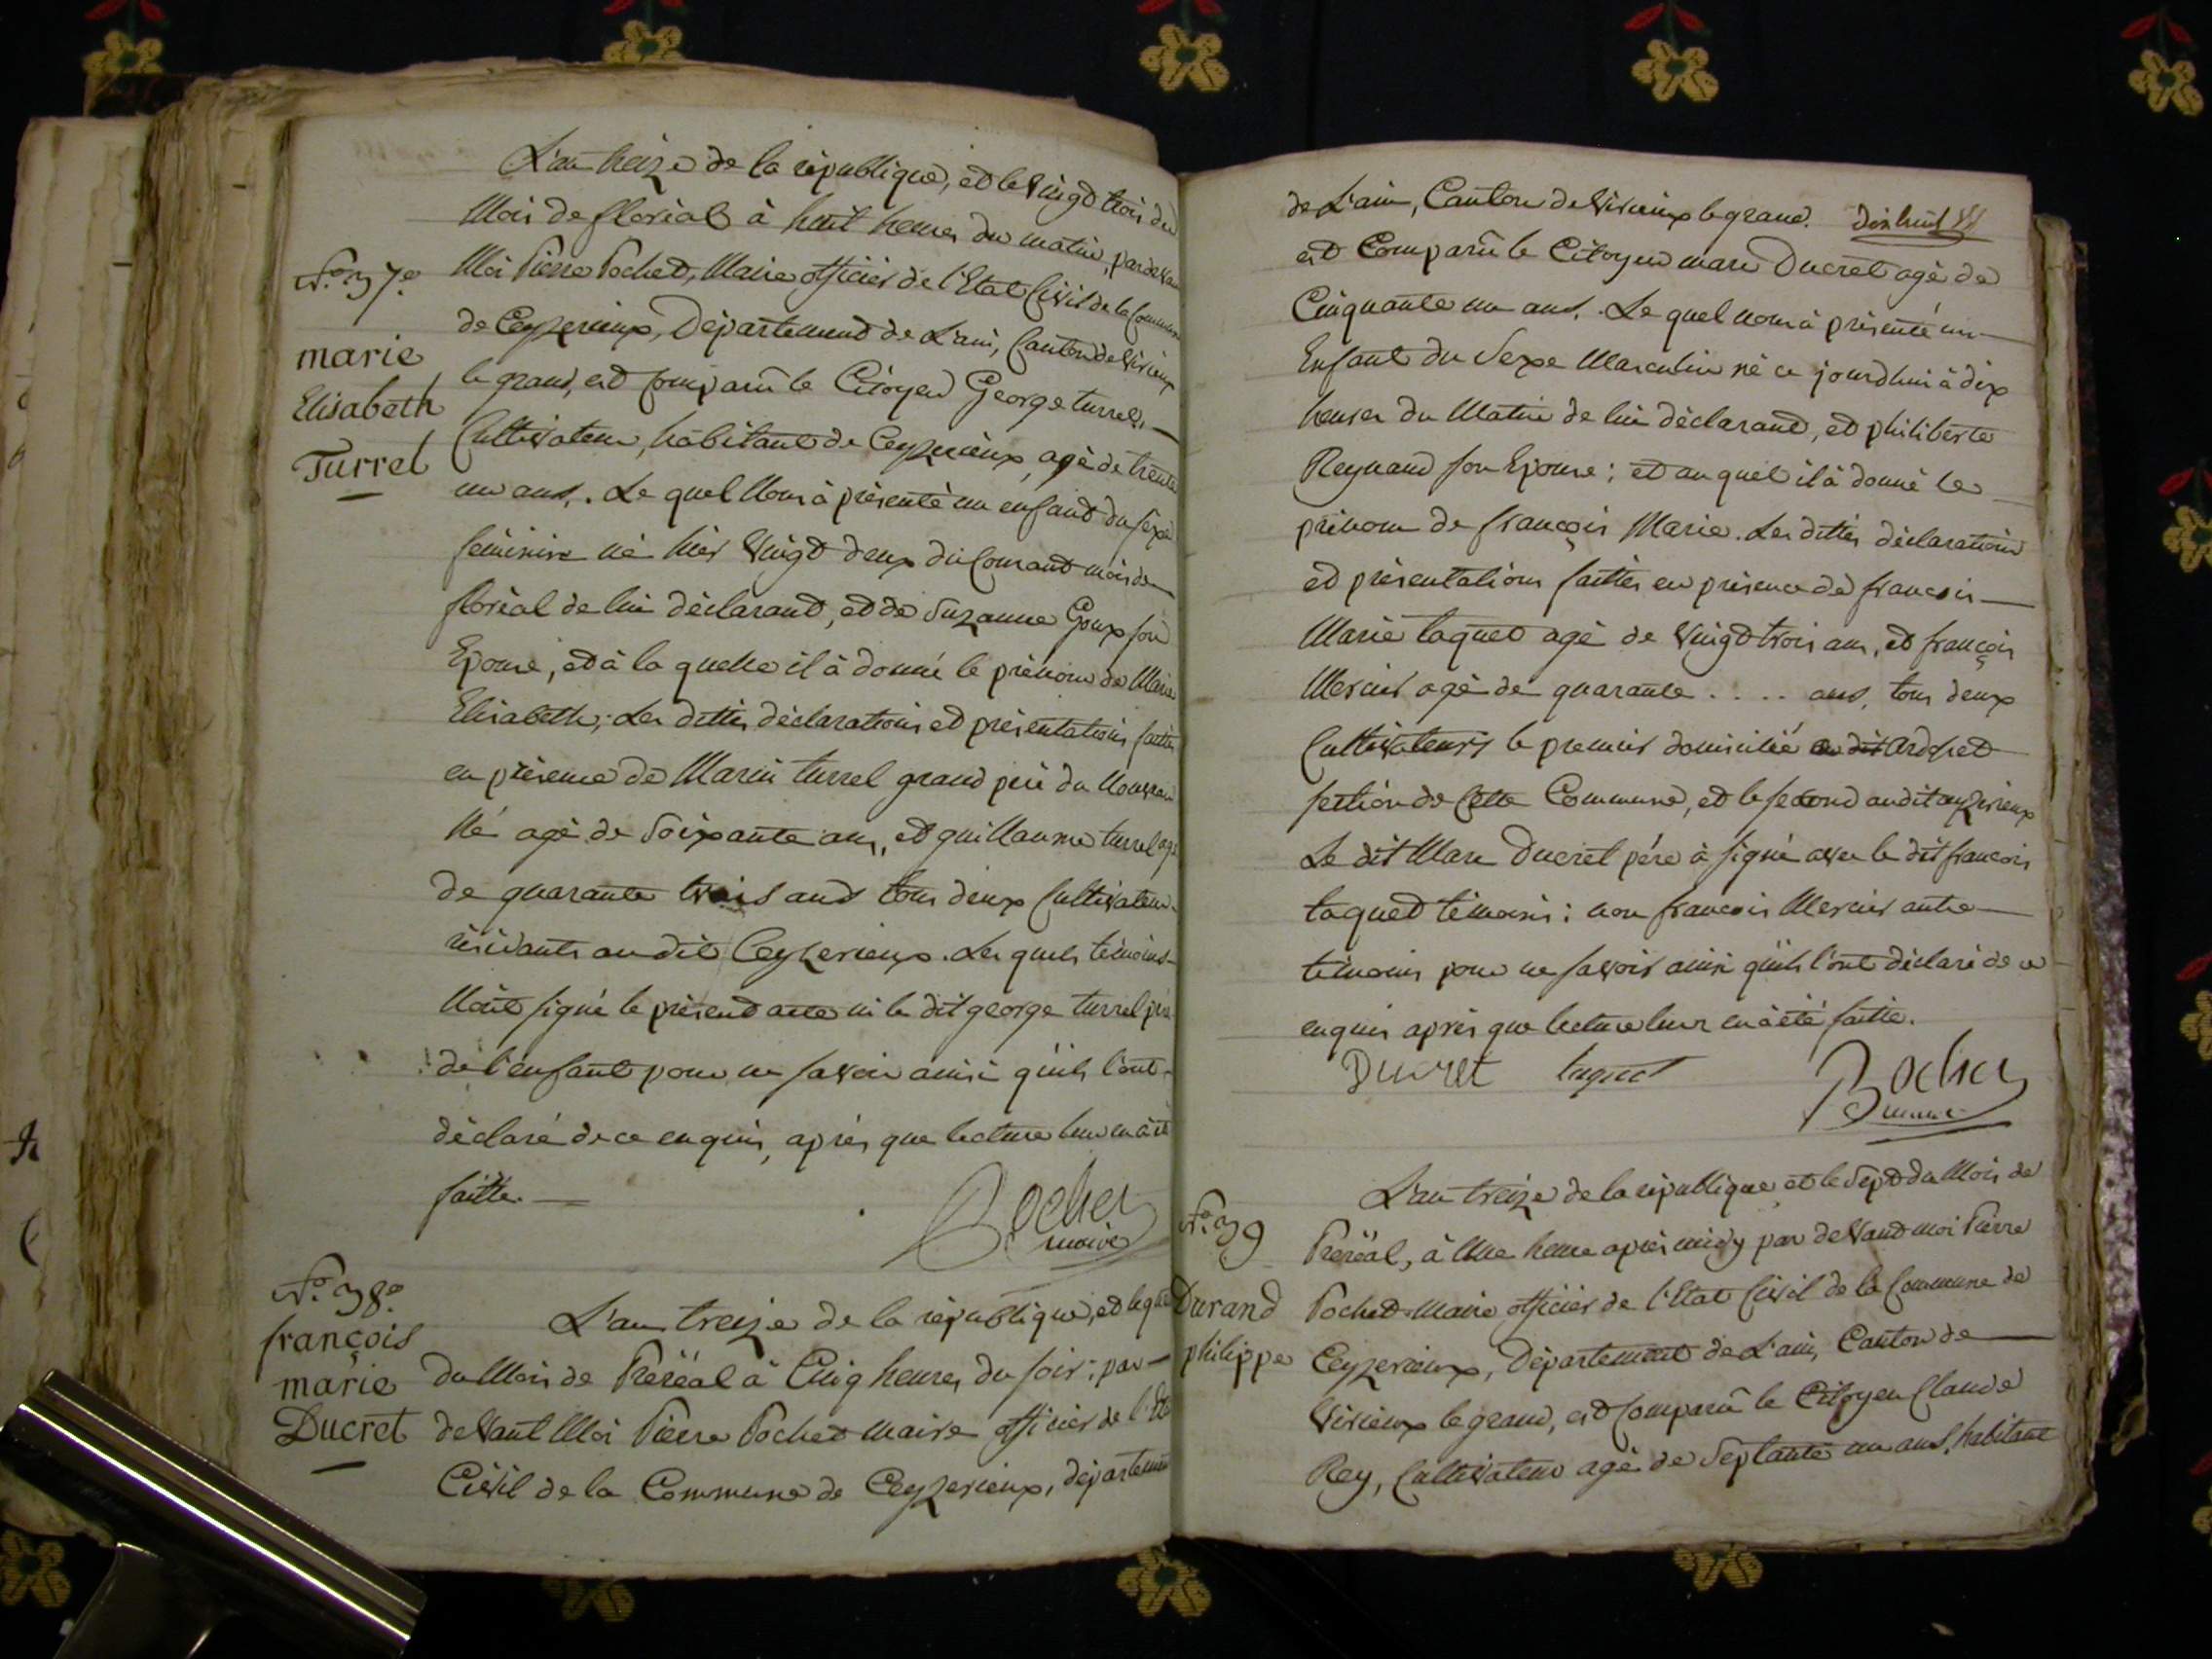 L'an treize de la république, et le vingt trois du
Mois de floréal à huit heures du matin, pardevant
Moi Pierre Pochet, Maire officier de l'Etat Civil de la Commune
de Ceyzerieux, Département de L'ain, Canton de Virieux
le grand, est comparû le Citoyen George turrel,
Cultivateur, habitant de Ceyzerieux, agé de trente
un ans,. Le quel Nous à présenté un enfant du sexe
féminin né hier Vingt deux du Courant mois de
floréal de lui déclarant, et de Suzanne Goux son
Epouse, et à la quelle il à donné le prénom de Marie
Elisabeth; Les dittes déclarations et présentations faittes
en présence de Marin turrel grand père du Nouveau
Né agé de Soixante ans, et guillaume turrel agé
de quarante trois ans tous deux Cultivateurs
résidants au dit Ceyzerieux. Les quels témoins
N'ont signé le présent acte ni le dit george turrel père
de l'enfant pour ne savoir ainsi qu'ils l'ont
déclaré de ce enquis, après que lecture leur en à été
faitte.
Pochet
maire
N.o 37.e
marie
Elisabeth
Turrel
N.o 38.e
françois
marie
Ducret
L'an treize de la république, et le
du Mois de Préréal à Cinq heures du soir; par
devant Moi Pierre Pochet maire officier de l'Etat
Civil de la Commune de Ceyzerieux, département
de L'ain, Canton de Virieux le grand. dix huit
est Comparû le Citoyen marc Ducret agé de
Cinquante un ans,. Le quel nous à présenté un
Enfant du Sexe Masculin né ce jourdhui à dix
heures du Matin de lui déclarant, et philiberte
Reynaud son Epouse; et au quel il à donné le
prénom de françois Marie. Les dittes déclarations
et présentations faittes en présence de françois
Marie taquet agé de Vingt trois ans, et françois
Mercier agé de quarante .... ans, tous deux
Cultivateurs le premier domicilié au dit Ardosset
section de Cette Commune, et le second audit Ceyzerieux
Le dit Marc Ducret père à signé avec le dit françois
taquet témoins; non françois Mercier autre
témoins pour ne savoir ainsi qu'ils l'ont déclaré de ce
enquis après que lecture leur en à été faitte.
Ducret taquet Pochet
maire
N.o 39
Durand
philippe
L'an treize de la république et le Sept du Mois de
Préréal, à Une heure après midy par devant moi Pierre
Pochet Maire officier de l'Etat Civil de la Commune de
Ceyzerieux, Département de L'ain, Canton de
Virieux le grand, est comparû le Citoyen Claude
Rey, Cultivateur agé de Septante un ans, habitant